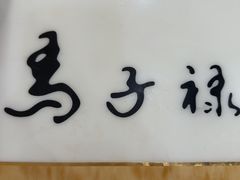 馬子禄